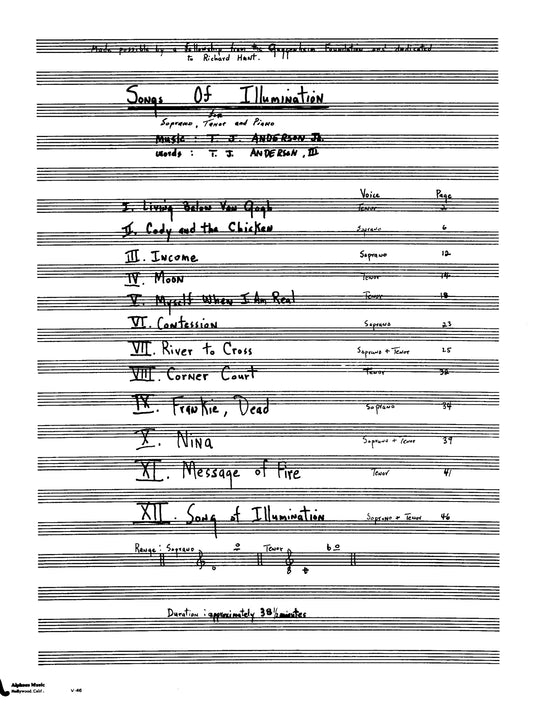 Made possible by a fellowship from the Guggenheim Foundation and dedicated
to Richard Hunt.
Songs Of Illumination
for
Soprano, Tenor and Piano
Music : T. J. ANDERSON Jr.
words : T. J. ANDERSON, III
Voice Page
I. Living Below Van Gogh Tenor 2
II. Cody and the Chicken Soprano 6
III. Income Soprano 12
IV. Moon Tenor 14
V. Myself When I Am Real Tenor 18
VI. Confession Soprano 23
VII. River to Cross Soprano + Tenor 25
VIII. Corner Court Tenor 32
IX. Frankie, Dead Soprano 34
X. Nina Soprano + Tenor 39
XI. Message of Fire Tenor 41
XII. Song of Illumination Soprano + Tenor 46
Range : Soprano Tenor
Duration : approximately 38 1/2 minutes
Alpheus Music
Hollywood, Calif.
V-46